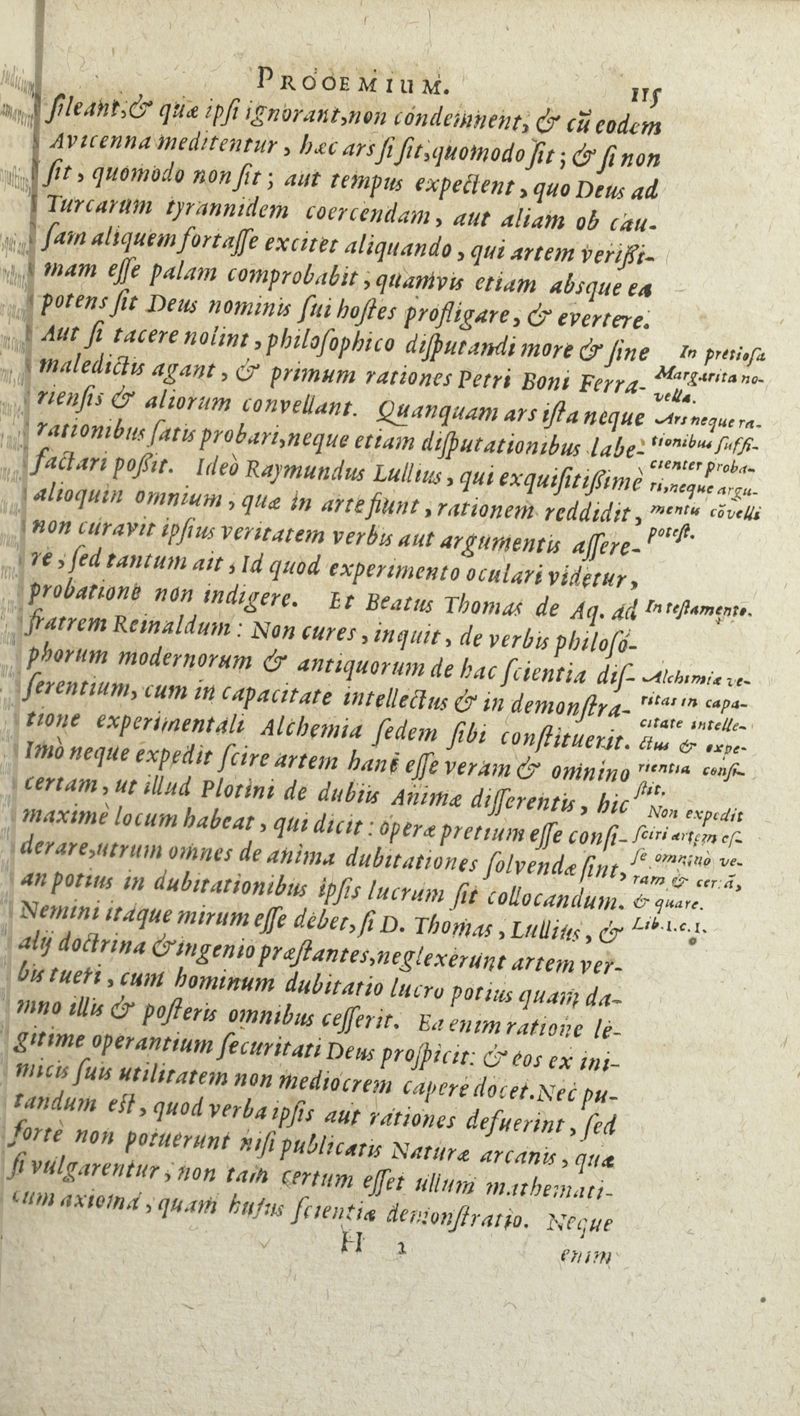 PROOEMIUM. 115
sileant,& quæ ipsi ignorant,non condemnent, & cũ eodem
Avicenna meditentur, hæc ars si sit,quomodo sit; & si non
sit, quomodo non sit; aut tempus expectent, quo Deus ad
Turcarum tyrannidem coercendam, aut aliam ob cau-
sam aliquem fortasse excitet aliquando, qui artem verissi-
mam esse palam comprobabit, quamvis etiam absque ea
potens sit Deus nominis sui hostes profligare, & evertere.
Aut si tacere nolint, philosophico disputandi more & sine
maledictis agant, & primum rationes Petri Boni Ferra-
riensis & aliorum convellant. Quanquam ars ista neque
rationibus satis probari,neque etiam disputationibus labe-
factari possit. Ideò Raymundus Lullius, qui exquisitissimè
alioquin omnium, quæ in arte fiunt, rationem reddidit,
non curavit ipsius veritatem verbis aut argumentis assere-
re, sed tantum ait, Id quod experimento oculari videtur,
probatione non indigere. Et Beatus Thomas de Aq. ad
fratrem Reinaldum: Non cures, inquit, de verbis philoso-
phorum modernorum & antiquorum de hac scientia dis-
serentium, cum in capacitate intellectus & in demonstra-
tione experimentali Alchemia sedem sibi constituerit.
Imò neque expedit scire artem hanc esse veram & omnino
certam, ut illud Plotini de dubiis Animæ disserentis, hic
maximè locum habeat, qui dicit: operæ pretium esse consi-
derare,utrum omnes de anima dubitationes solvendæ sint,
an potius in dubitationibus ipsis lucrum sit collocandum.
Nemini itaque mirum esse debet, si D. Thomas, Lullius, &
alij doctrina & ingenio præstantes,neglexerunt artem ver-
bis tueri, cum hominum dubitatio lucro potius quam da-
mno illis & posteris omnibus cesserit. Ea enim ratione le-
gitime operantium securitati Deus prospicit: & eos ex ini-
micis suis utilitatem non mediocrem capere docet. Nec pu-
tandum est, quod verba ipsis aut rationes defuerint, sed
forte non potuerunt nisi publicatis Naturæ arcanis, quæ
si vulgarentur, non tam certum esset ullum mathemati-
cum axioma, quam hujus scientiæ demonstratio. Neque
H 2 enim
In pretiosa
Margarita no-
vella.
Ars neque ra-
tionibus suffi-
cienter proba-
ri,neque argu-
mentis cõvelli
potest.
In testamento.
Alchimiæ ve-
ritas in capa-
citate intelle-
ctus & expe-
rientia consi-
stit.
Non expedit
sciri artem es-
se omnino ve-
ram & certã,
& quare.
Lib.1.c.1.